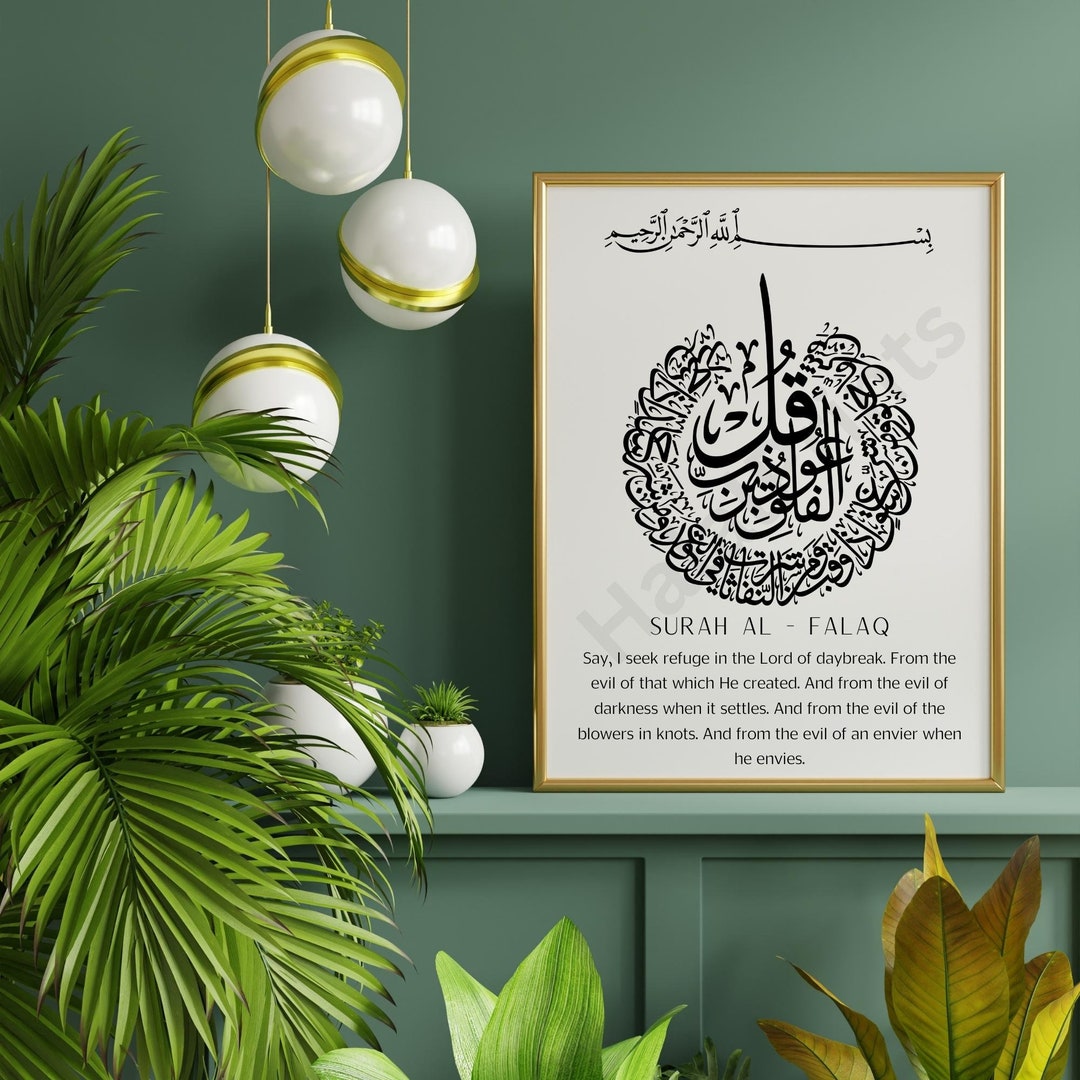 بِسْمِ ٱللَّهِ ٱلرَّحْمَٰنِ ٱلرَّحِيمِ
قُلْ أَعُوذُ بِرَبِّ الْفَلَقِ
مِن شَرِّ مَا خَلَقَ وَمِن شَرِّ غَاسِقٍ إِذَا وَقَبَ وَمِن شَرِّ النَّفَّاثَاتِ فِي الْعُقَدِ وَمِن شَرِّ حَاسِدٍ إِذَا حَسَدَ
SURAH AL - FALAQ
Say, I seek refuge in the Lord of daybreak. From the
evil of that which He created. And from the evil of
darkness when it settles. And from the evil of the
blowers in knots. And from the evil of an envier when
he envies.